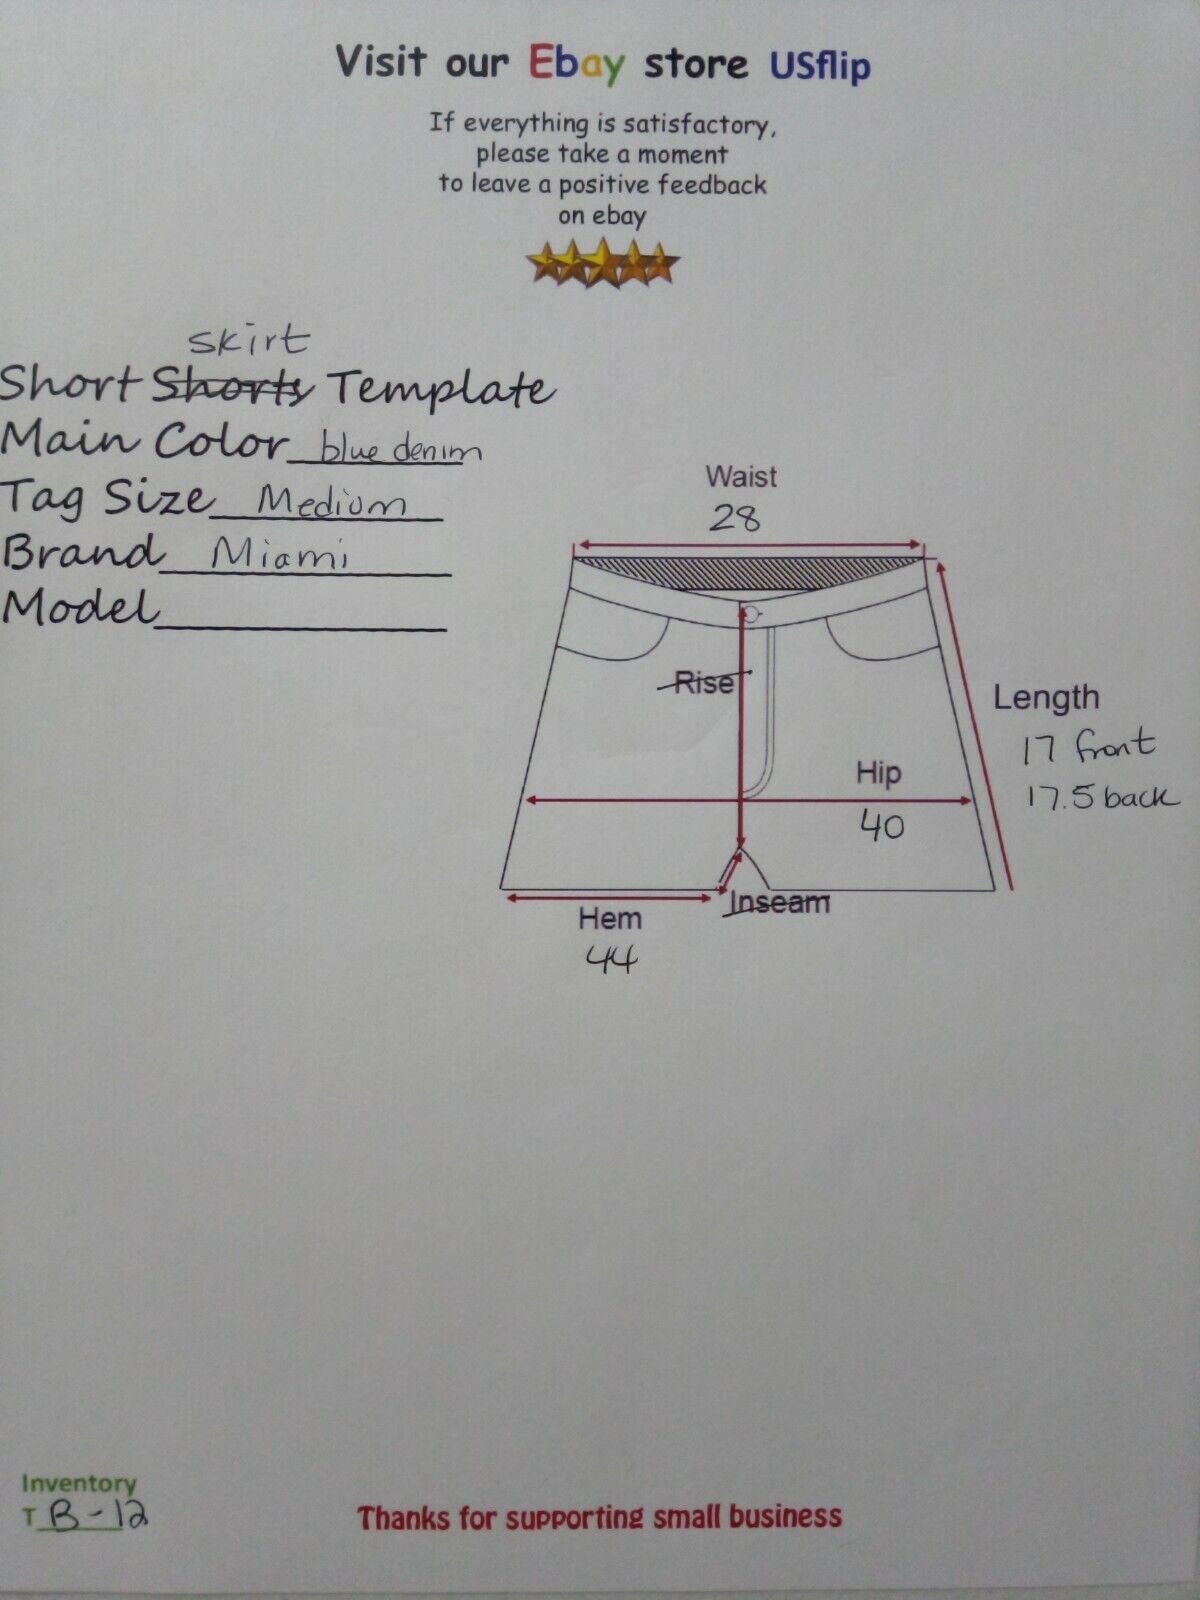 Visit our Ebay store USflip
If everything is satisfactory,
please take a moment
to leave a positive feedback
on ebay
skirt
Short Shorts Template
Main Color blue denim
Tag Size Medium
Brand Miami
Model
Waist
28
Rise
Length
17 front
17.5 back
Hip
40
Inseam
Hem
44
Inventory
T B-12
Thanks for supporting small business